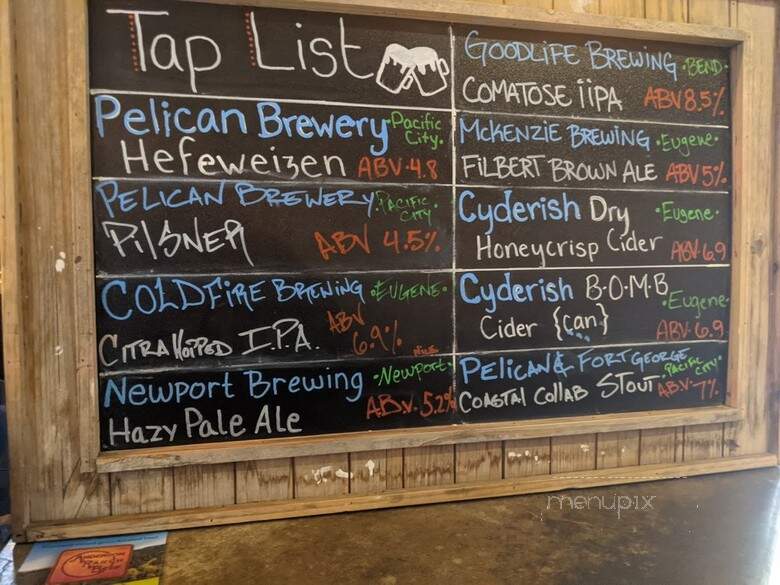 Tap List
Pelican Brewery •Pacific City.
Hefeweizen ABV•4.8
Pelican Brewery •Pacific City•
Pilsner ABV 4.5%
ColdFire Brewing •Eugene•
Citra Hopped I.P.A. ABV 6.9%
Newport Brewing •Newport•
Hazy Pale Ale ABV• 5.2%
GoodLife Brewing •Bend•
Comatose IIPA ABV 8.5%
McKenzie Brewing •Eugene•
Filbert Brown Ale ABV 5%
Cyderish Dry •Eugene•
Honeycrisp Cider ABV•6.9
Cyderish B•O•M•B •Eugene•
Cider {can} ABV•6.9
Pelican & Fort George •Pacific City•
Coastal Collab Stout ABV• 7%
menupix